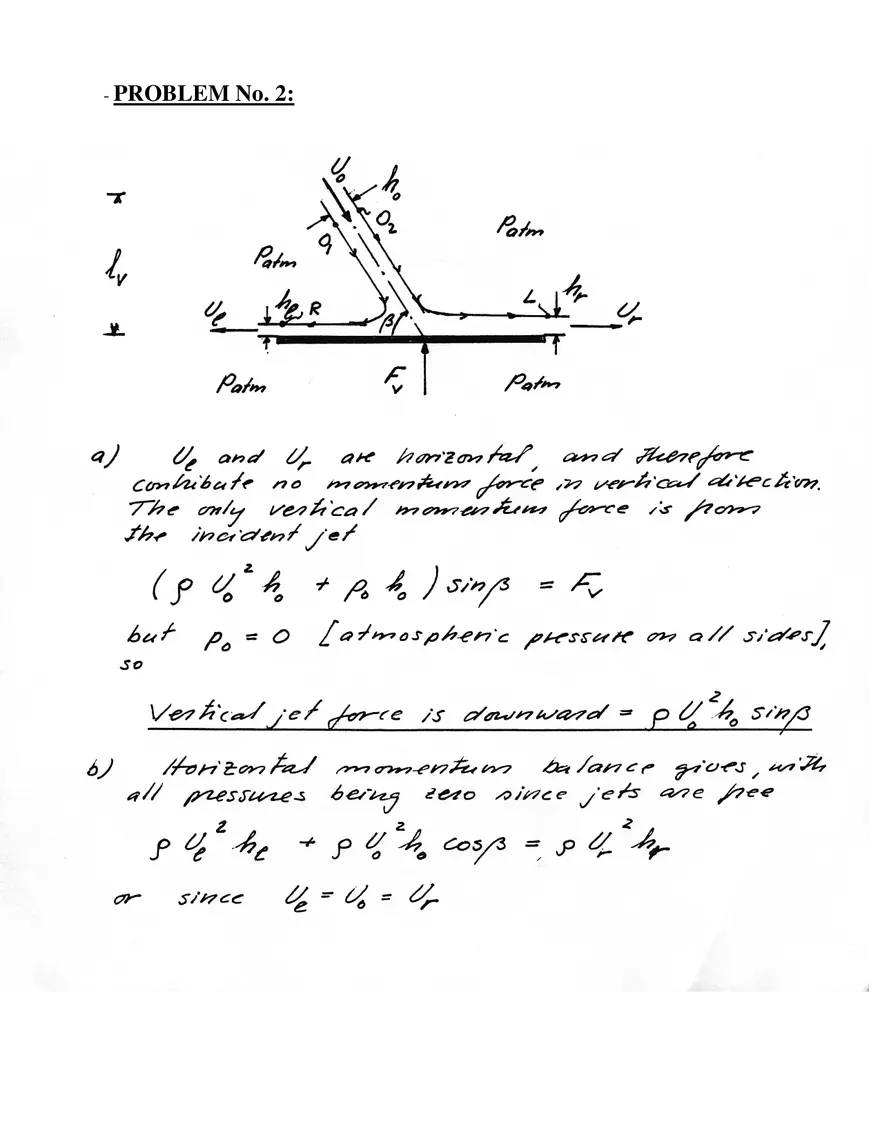 - PROBLEM No. 2:
U₀
h₀
O₂
Patm
O₁
Patm
lᵥ
hᵣ
L
hₗ
R
Uₗ
β
Uᵣ
Patm
Fᵥ
Patm
a) Uₗ and Uᵣ are horizontal, and therefore
contribute no momentum force in vertical direction.
The only vertical momentum force is from
the incident jet
(ρ U₀² h₀ + p₀ h₀) sinβ = Fᵥ
but p₀ = 0 [atmospheric pressure on all sides],
so
Vertical jet force is downward = ρ U₀² h₀ sinβ
b) Horizontal momentum balance gives, with
all pressures being zero since jets are free
ρ Uₗ² hₗ + ρ U₀² h₀ cosβ = ρ Uᵣ² hᵣ
or since Uₗ = U₀ = Uᵣ